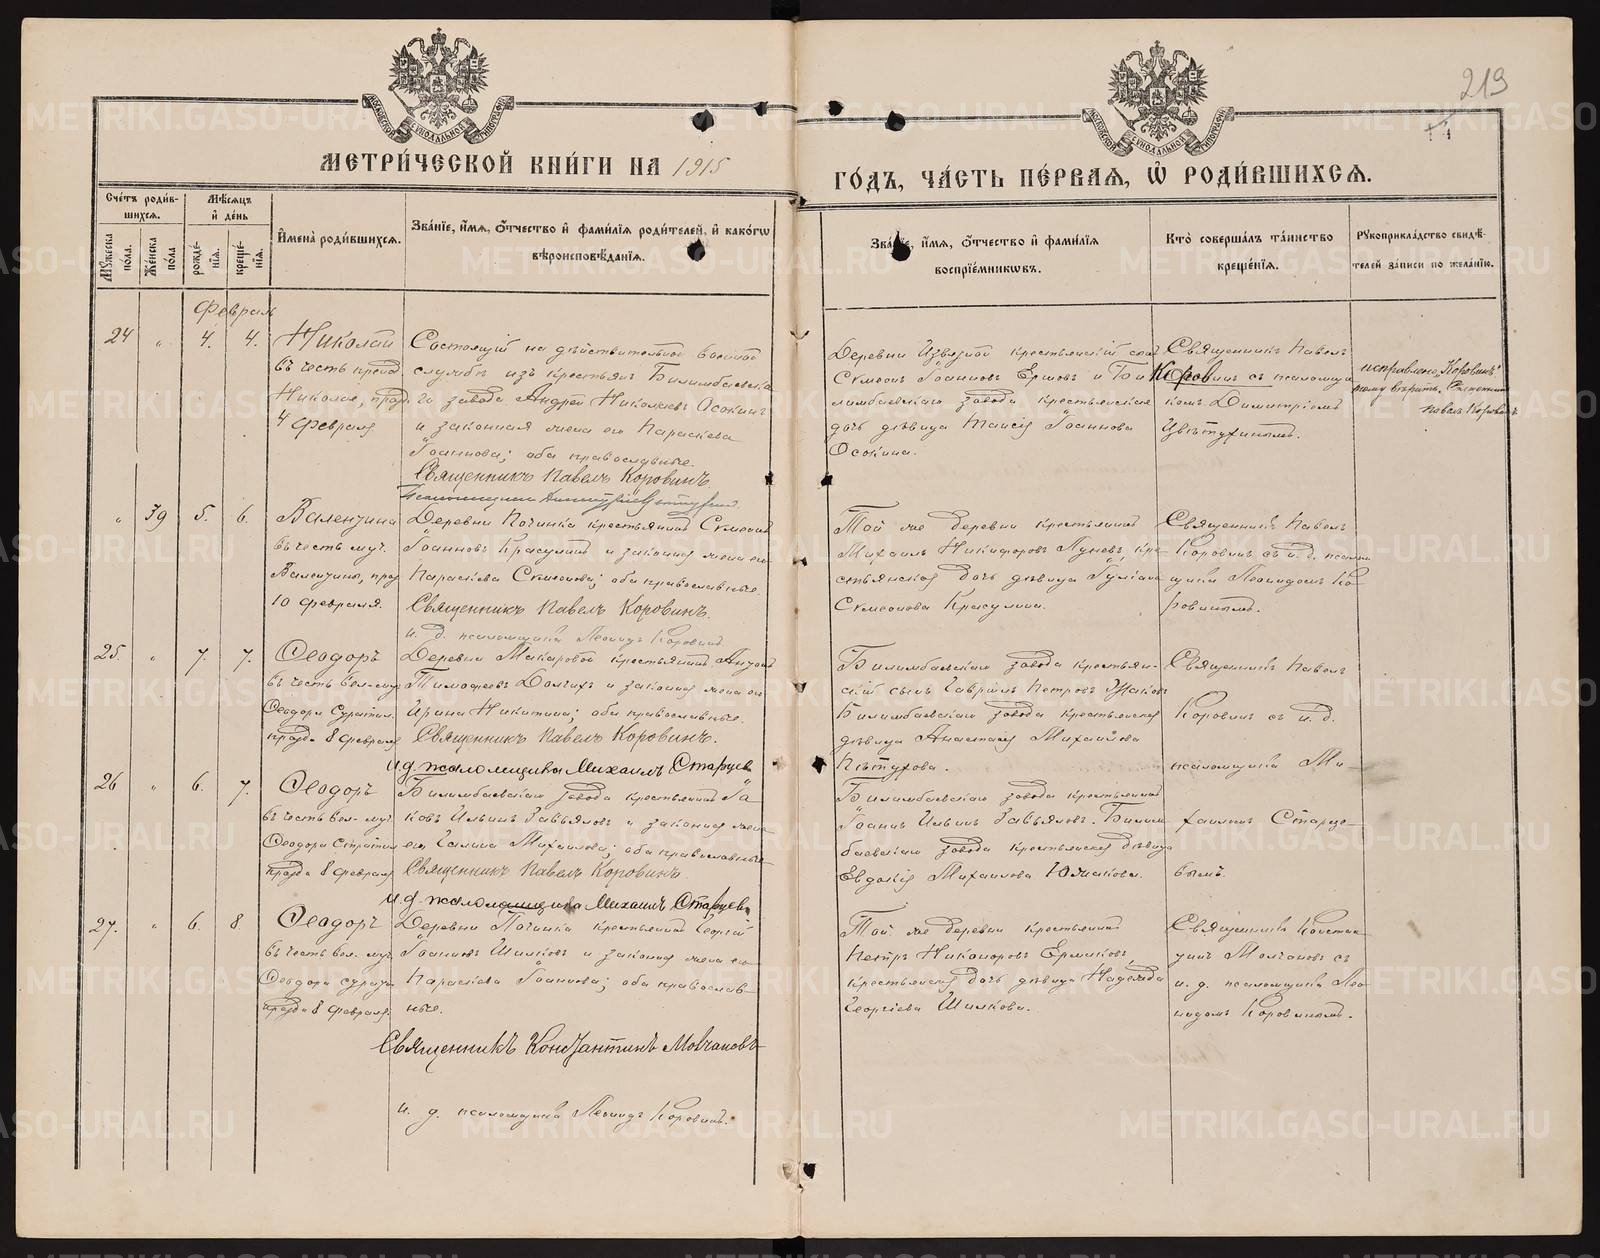 219
МЕТРИ́ЧЕСКОЙ КНИ́ГИ НА 1915
ГО́ДЪ, ЧА́СТЬ ПЕ́РВАЯ, Ѡ҆ РОДИ́ВШИХСЯ.
Сче́тъ роди́в-
шихся.
Мѣ́сяцъ
и҆ де́нь
Мꙋ́жеска
по́ла.
Же́нска
по́ла
рожде́-
нїя.
креще́-
нїя.
И҆мена̀ роди́вшихся.
Зва́нїе, и҆́мя, ѻ҆́тчество и҆ фами́лїя роди́телей, и҆ како́гѡ
вѣроисповѣ́данїя.
Зва́нїе, и҆́мя, ѻ҆́тчество и҆ фами́лїя
воспрїе́мникѡвъ.
Кто̀ соверша́лъ та́инство
креще́нїя.
Рꙋкоприкла́дство свидѣ́-
телей за́писи по жела́нїю.
Февраль
24 " 4. 4.
Николай
въ честь препод.
Николая, празд.
4 февраля
Состоящій на дѣйствительной военной
службѣ изъ крестьянъ Билимбаевска
го завода Андрей Николаевъ Осокинъ
и законная жена его Параскева
Іоаннова; оба православные.
Священникъ Павелъ Коровинъ
Деревни крестьянскій сынъ
Сѵмеонъ Іоанновъ Ершовъ и Би
лимбаевскаго завода крестьянская
дочь дѣвица Таисія Іоаннова
Осокина.
Священникъ Павелъ
Коровинъ съ псаломщи
комъ Димитріемъ
Цвѣтухинымъ.
исправлено „Коровинъ"
тому вѣрить.
Павелъ Коровинъ
" 39 5. 6.
Валентина
въ честь муч.
Валентины, праз
10 февраля.
Деревни Починка крестьянинъ Сѵмеонъ
Іоанновъ Красулинъ и законная жена его
Параскева Сѵмеонова; оба православные.
Священникъ Павелъ Коровинъ.
и. д. псаломщика Леонидъ Коровинъ
Той же деревни крестьянинъ
Михаилъ Никифоровъ Луневъ, кре
стьянская дочь дѣвица Іуліанія
Сѵмеонова Красулина.
Священникъ Павелъ
Коровинъ съ и. д. псалом
щика Леонидомъ Ко
ровинымъ.
25. " 7. 7.
Ѳеодоръ
въ честь вел-му
Ѳеодора Стратил.
празд. 8 февраля
Деревни Макаровой крестьянинъ Антонъ
Тимофеевъ Долгихъ и законная жена его
Ирина Никитина; оба православные.
Священникъ Павелъ Коровинъ.
и.д. псаломщика Михаилъ Старцевъ
Билимбаевскаго завода крестьян-
скій сынъ Гавріилъ Петровъ
Билимбаевскаго завода крестьянская
дѣвица Анастасія Михайлова
Пѣтухова.
Священникъ Павелъ
Коровинъ съ и. д.
псаломщика Ми-
26 " 6. 7.
Ѳеодоръ
въ честь вел-му
Ѳеодора Стратил
празд. 8 февраля
Билимбаевскаго завода крестьянинъ Іа
ковъ Ильинъ Завьяловъ и законная жена
его Галина Михаилова; оба православные
Священникъ Павелъ Коровинъ
и.д. псаломщика Михаилъ Старцевъ
Билимбаевскаго завода крестьянинъ
Іоаннъ Ильинъ Завьяловъ. Билим
баевскаго завода крестьянская дѣвица
Евдокія Михаилова Южакова.
хаиломъ Старце-
вымъ.
27. " 6. 8.
Ѳеодоръ
въ честь вел- му
Ѳеодора стратил
празд 8 февраля.
Деревни Починка крестьянинъ Георгій
Іоанновъ Шилковъ и законная жена его
Параскева Іоаннова; оба православ-
ные.
Священникъ Константинъ Молчановъ
и. д. псаломщика Леонидъ Коровинъ.
Той же деревни крестьянинъ
Петръ Никаноровъ Ермиковъ,
крестьянская дочь дѣвица Надежда
Георгіева Шилкова.
Священникъ Констан
тинъ Молчановъ съ
и. д. псаломщика Лео
нидомъ Коровинымъ.
METRIKI.GASO-URAL.RU